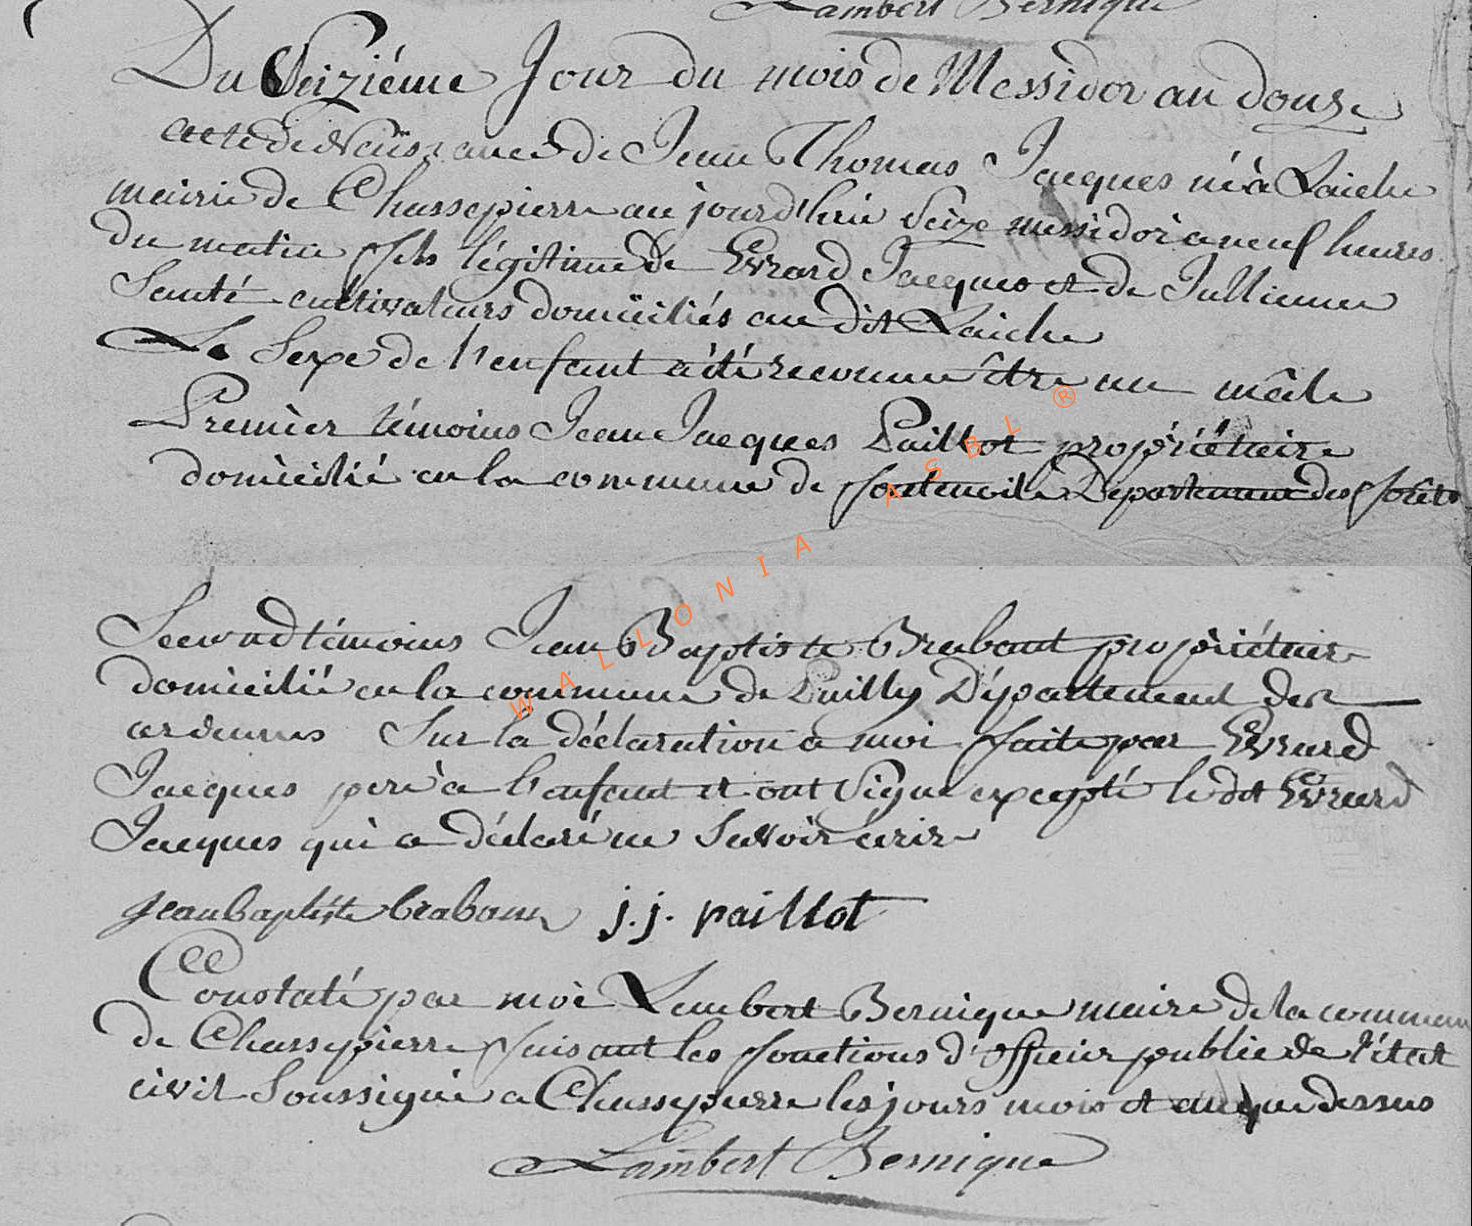 Lambert Bernique
Du Seiziéme Jour du mois de Messidor an douze
acte de Naissance de Jean Thomas Jacques né à Laiche
mairie de Chassepierre au jourd'hui Seize messidor a neuf heures
du matin fils légitime de Evrard Jacques et de Jullienne
Santé cultivateurs domiciliés au dit Laiche
Le Sexe de l'enfant a été reconnu être un mâle
Premier témoins Jean Jacques Paillot propriétaire
domicilié en la commune de fontenoile Departement des forêts
Second témoins Jean Baptiste Brabant propriétaire
domicilié en la commune de Puilly Département des
ardennes Sur la déclaration a moi faite par Evrard
Jacques pere a l'enfant et ont Signé excepté le dit Evrard
Jacques qui a déclaré ne Savoir écrire
jean baptiste brabant j. j. paillot
Constaté par moi Lambert Bernique maire de la commune
de Chassepierre faisant les fonctions d'officier public de l'état
civil Soussigné a Chassepierre les jours mois et an que dessus
Lambert Bernique
WALLONIA ASBL ®